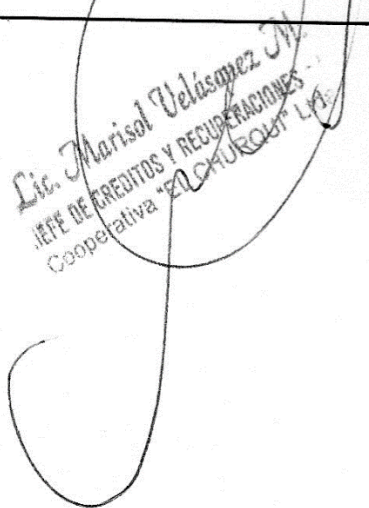 Lic. Marisol Velásquez M.
JEFE DE CREDITOS Y RECUPERACIONES
Cooperativa "EL CHURQUI" Ltda